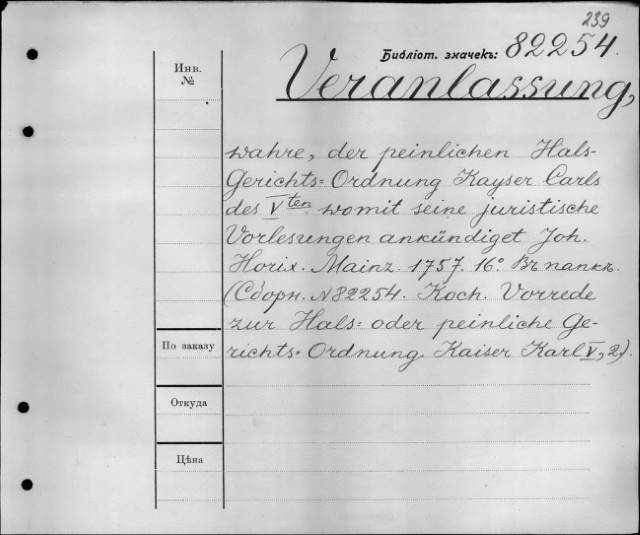 239
Библіот. значекъ: 82254.
Инв.
№
Veranlassung,
wahre, der peinlichen Hals-
Gerichts= Ordnung Kayser Carls
des V ten womit seine juristische
Vorlesungen ankündiget Joh.
Horix. Mainz. 1757. 16°. Въ папкѣ.
(Сборн. N 82254. Koch. Vorrede
zur Hals= oder peinliche Ge-
richts= Ordnung Kaiser Karl V, 2).
По заказу
Откуда
Цѣна